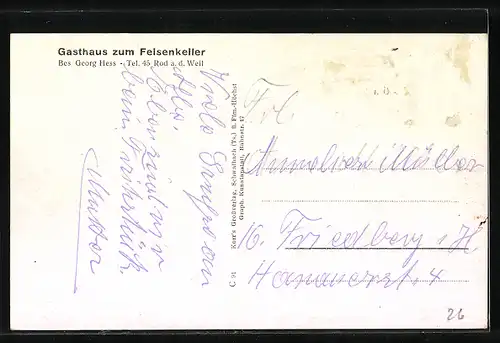 Gasthaus zum Felsenkeller
Bes Georg Hess - Tel. 45 Rod a. d. Weil
Viele Grüße von
Mutter
C 91
Karr's Großverlag, Schwalbach (Ts.) ü. Ffm.-Höchst
Graph. Kunstanstalt, Bahnstr. 17
Frl.
Annaliese Müller
16. Friedberg i. H
Hanauerstr. 4
26